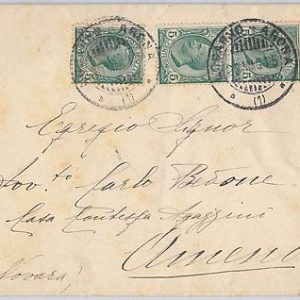 ARENA
5 5 5
ARENA
(1)
(1)
Egregio Signor
Avv.to Carlo Bedone
Casa Contessa Agazzini
Ameno
(Novara)